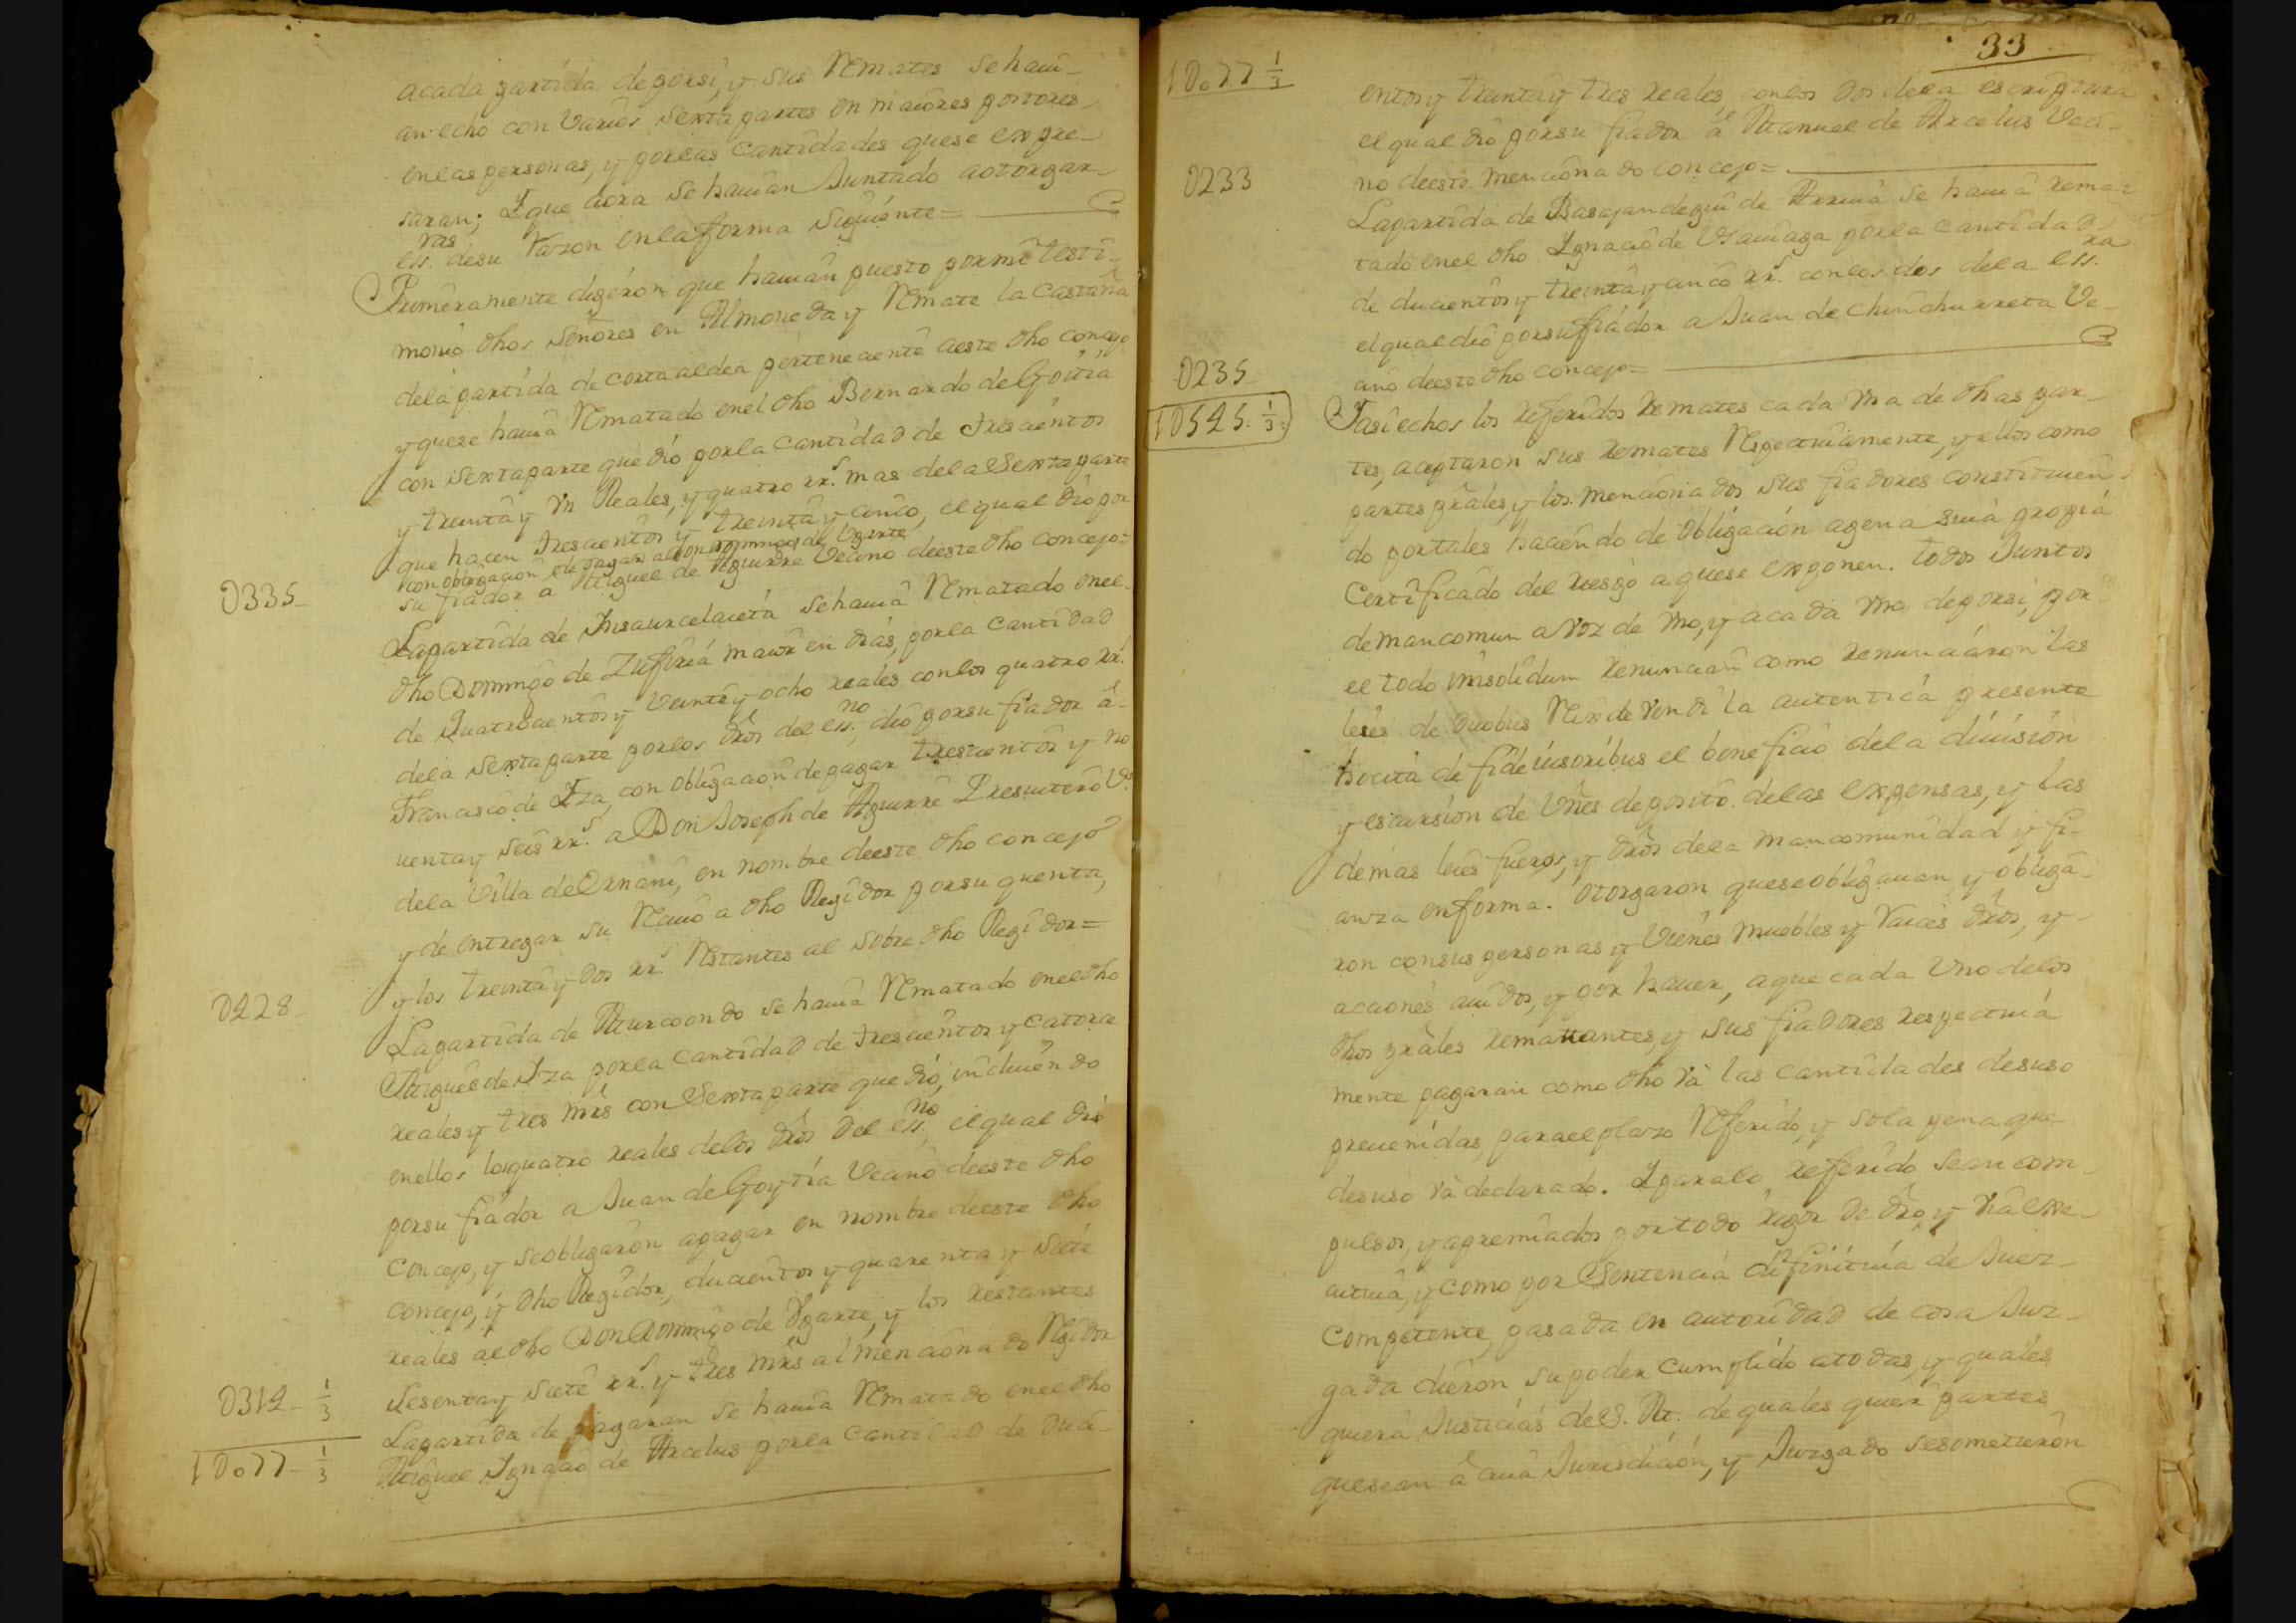 acada partida de porsi, y sus Remates se haui-
an echo con Varios sexta partes en maiores postores
enlas personas, y porlas cantidades quese expre-
saran; Y que aora se hauian Juntado aotorgar
ess.ras desu Razon enla forma siguiente=
Primeramente digeron que hauian puesto pormi testi-
monio dhos señores en Almoneda y Remate la castaña
dela partida de cortaaldea perteneciente aeste dho concejo
y quese hauia Rematado enel dho Bernardo de Goitia
con sexta parte que dio porla cantidad de trescientos
y treinta y un Reales, y quatro rr.s mas dela sexta parte
que hacen trescientos y treinta y cinco, el qual dio por
con obligacion de pagar a Don Domingo de Ugarte
0335_ su fiador a Miguel de Aguirre Vecino deeste dho concejo=
Lapartida de Insaurcelaieta se hauia Rematado enel
dho Domingo de Zufiria maior en dias, porla cantidad
de Quatrocientos y Veinte y ocho reales conlos quatro rr.s
dela sexta parte porlos dros del ess.no, dio porsu fiador â
Francisco de Yza, con obligacion de pagar trescientos y no
uenta y seis rr.s a Don Joseph de Aguirre Presuitero V.o
dela Villa de Ernani, en nombre deeste dho concejo
y de entregar su Reciuo a dho Regidor porsu quenta,
0428_ y los treinta y dos rr.s Restantes al sobre dho Regidor=
Lapartida de Murcoondo se hauia Rematado eneldho
Miguel de Yza porla cantidad de trescientos y catorce
reales y tres mrs con sexta parte que dio, incluiendo
enellos los quatro reales delos dros del ess.no, el qual dio
porsu fiador a Juan de Goytia Vecino deeste dho
concejo, y seobligaron apagar en nombre deeste dho
concejo, y dho Regidor, ducientos y quarenta y siete
reales al dho Don Domingo de Ugarte, y los restantes
0314_ 1/3 sesenta y siete rr.s y tres mrs al mencionado Regidor
Lapartida de pagaran se hauia Rematado enel dho
1D077_ 1/3 Miguel Ignacio de Arcelus porla cantidad de duci-
33
1D077 1/3
entos y treinta y tres reales, conlos dos dela escriptura
el qual dio porsu fiador â Manuel de Arcelus Veci-
0233 no deeste mencionado concejo=
Lapartida de Basajandegui de Arriua se hauia rema-
tado enel dho Ygnacio de Usauiaga porla cantidad
de ducientos y treinta y cinco rr.s conlos dos dela ess.ra
el qual dio porsu fiador a Juan de Chinchurreta Ve-
0235_ cino deeste dho concejo=
1D545. 1/3: Yasi echos los referidos remates cada una de dhas par-
tes, aceptaron sus remates Respectiuamente, y ellos como
partes prâles, y los mencionados sus fiadores constituien-
do portales haciendo de obligacion agena suia propia
Certificado del riesgo aquese exponen. todos Juntos
demancomun a voz de uno, y acada uno deporsi, por
el todo insolidum renunciaū como renunciaron las
leies de duobus Rexdevendi la autentica presente
hocita de fideiusoribus el beneficio dela diuision
y escursion de Vnes deposito. delas expensas, y las
demas leies fueros, y dros dela mancomunidad y fi-
anza enforma. Otorgaron queseobligauan y obliga-
ron consus personas y Vienes muebles y Raices dros, y
acciones auidos, y por hauer, aque cada Uno delos
dhos prâles rematantes, y sus fiadores respectiua
mente pagaran como dho và las cantidades desuso
preuenidas, parael plazo Referido, y sola pena que
desuso và declarado. Y paralo referido sean com-
pulsos, y apremiados portodo rigor de dro, y via exe-
cutiua, y como por Sentencia difinitiua de Juez
competente, pasada en autoridad de cosa Juz-
gada dieron supoder cumplido atodas, y quales
quiera Justicias de S. M. de quales quier partes
quesean â cuia Jurisdicion, y Juzgado sesometieron